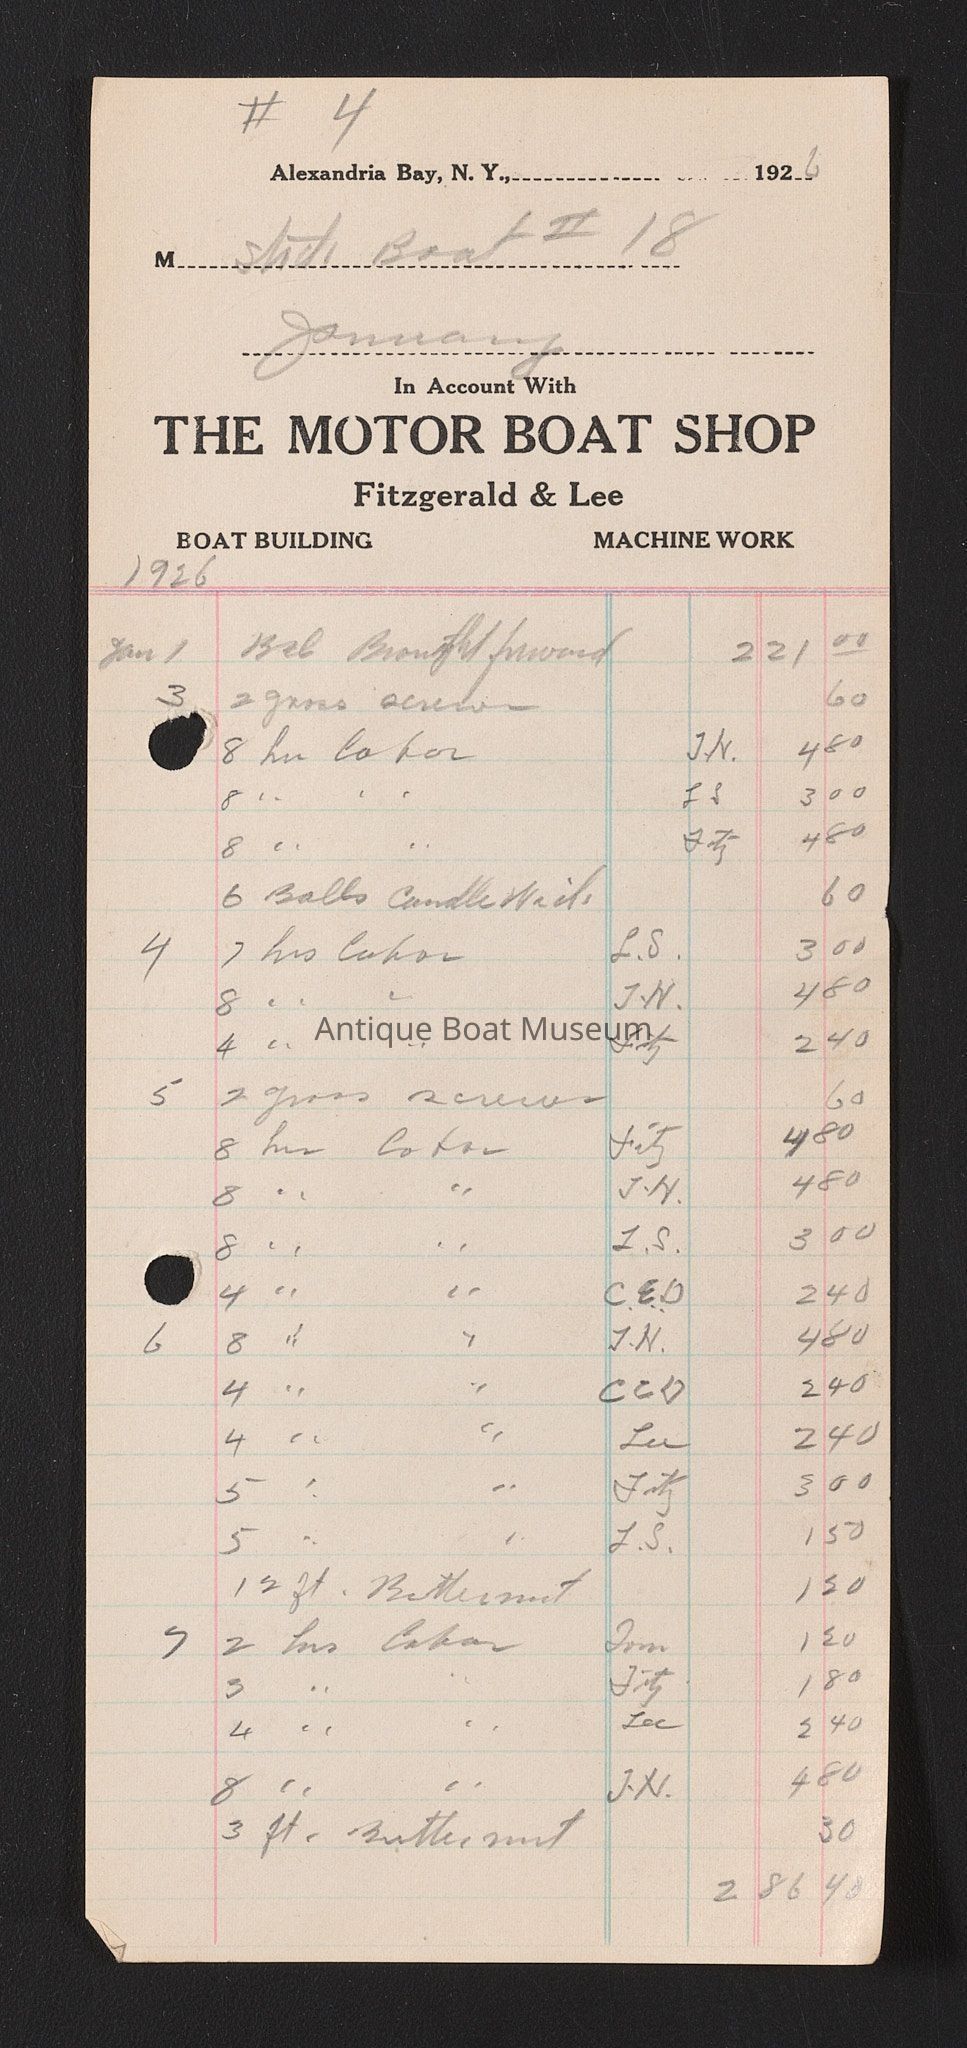 # 4
Alexandria Bay, N. Y., 1926
M State Boat # 18
January
In Account With
THE MOTOR BOAT SHOP
Fitzgerald & Lee
BOAT BUILDING MACHINE WORK
1926
Jan 1 Bal Brought forward 221 00
3 2 gross screws 60
8 hrs labor J.N. 4 80
8 " " L S 3 00
8 " " Fitz 4 80
6 Balls Candle Wick 60
4 7 hrs labor L.S. 3 00
8 " " J.N. 4 80
4 " " Fitz 2 40
Antique Boat Museum
5 2 gross screws 60
8 hrs labor Fitz 4 80
8 " " J.N. 4 80
8 " " L.S. 3 00
4 " " C.E.D 2 40
6 8 " " J.N. 4 80
4 " " C E D 2 40
4 " " Lee 2 40
5 " " Fitz 3 00
5 " " L.S. 1 50
12 ft. Butternut 1 20
7 2 hrs labor Tom 1 20
3 " " Fitz 1 80
4 " " Lee 2 40
8 " " J.N. 4 80
3 ft. Butternut 30
286 40